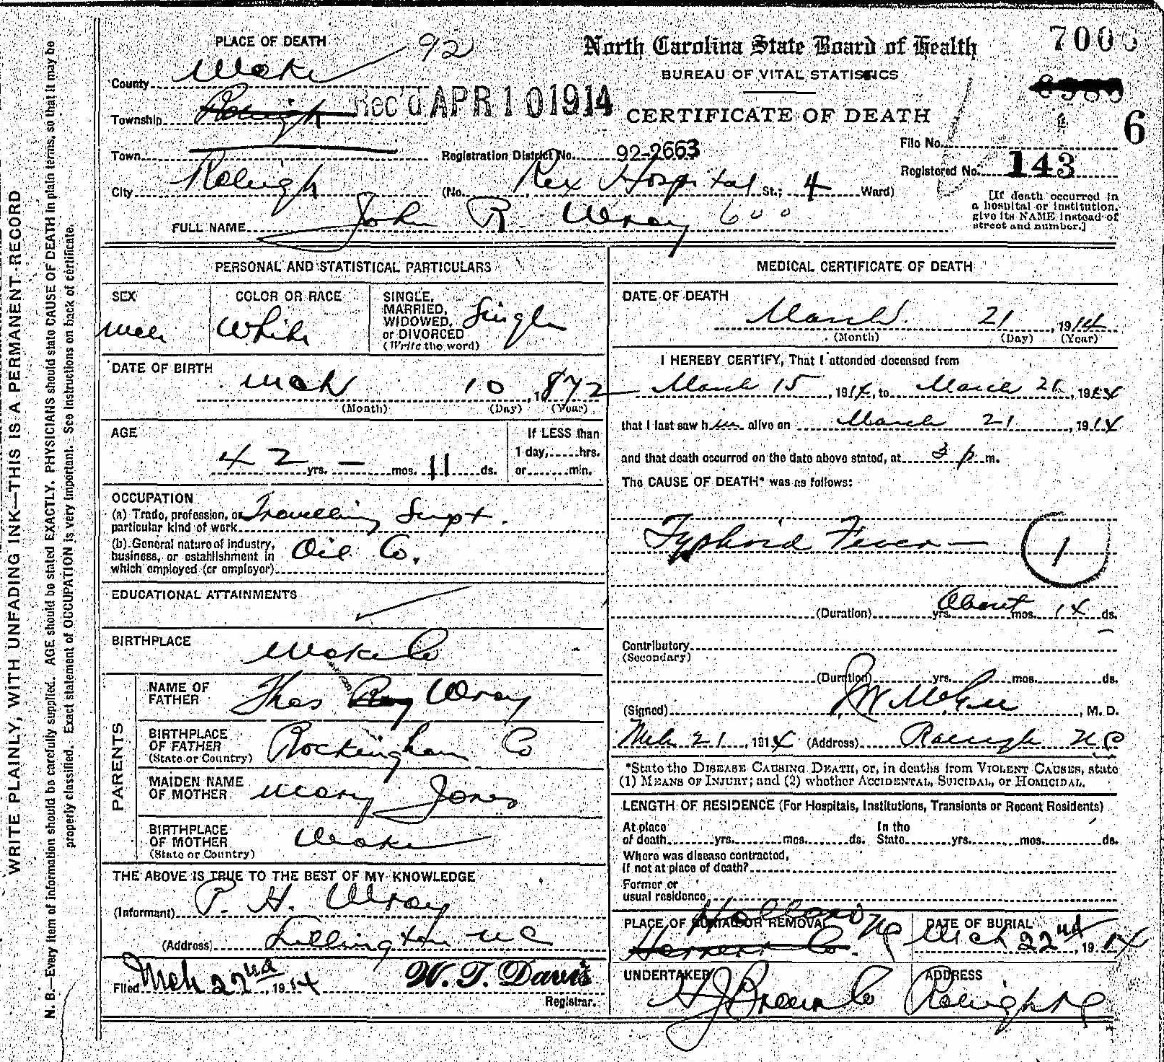 PLACE OF DEATH 92
County Wake
Township Raleigh Rec'd APR 10 1914
Town
City Raleigh (No. Rex Hospital St.; 4 Ward)
FULL NAME John R. Wray 600
North Carolina State Board of Health
BUREAU OF VITAL STATISTICS
CERTIFICATE OF DEATH
7006
6
Registration District No. 92-2663
File No.
Registered No. 143
[If death occurred in
a hospital or institution,
give its NAME instead of
street and number.]
PERSONAL AND STATISTICAL PARTICULARS
SEX
COLOR OR RACE White
SINGLE,
MARRIED,
WIDOWED,
or DIVORCED
(Write the word) Single
DATE OF BIRTH Mch 10, 1872
(Month) (Day) (Year)
AGE 42 yrs. – mos. 11 ds.
If LESS than
1 day,.....hrs.
or......min.
OCCUPATION
(a) Trade, profession, or
particular kind of work Travelling Supt.
(b) General nature of industry,
business, or establishment in
which employed (or employer) Oil Co.
EDUCATIONAL ATTAINMENTS
BIRTHPLACE Wake Co
PARENTS
NAME OF
FATHER Thos Wray
BIRTHPLACE
OF FATHER
(State or Country) Rockingham Co
MAIDEN NAME
OF MOTHER Mary Jones
BIRTHPLACE
OF MOTHER
(State or Country) Wake
THE ABOVE IS TRUE TO THE BEST OF MY KNOWLEDGE
(Informant) P. H. Wray
(Address) Lillington NC
Filed Mch 22nd, 1914 W. T. Davis
Registrar.
MEDICAL CERTIFICATE OF DEATH
DATE OF DEATH
March 21, 1914
(Month) (Day) (Year)
I HEREBY CERTIFY, That I attended deceased from
March 15, 1914, to March 21, 1914
that I last saw him alive on March 21, 1914
and that death occurred on the date above stated, at 3 p m.
The CAUSE OF DEATH* was as follows:
Typhoid Fever — 1
(Duration) yrs. About mos. 14 ds.
Contributory
(Secondary)
(Duration) yrs. mos. ds.
(Signed) , M. D.
Mch 21, 1914 (Address) Raleigh NC
*State the DISEASE CAUSING DEATH, or, in deaths from VIOLENT CAUSES, state
(1) MEANS OF INJURY; and (2) whether ACCIDENTAL, SUICIDAL, or HOMICIDAL.
LENGTH OF RESIDENCE (For Hospitals, Institutions, Transients or Recent Residents)
At place
of death yrs. mos. ds. In the
State yrs. mos. ds.
Where was disease contracted,
If not at place of death?
Former or
usual residence
PLACE OF BURIAL OR REMOVAL
DATE OF BURIAL Mch 22nd 1914
UNDERTAKER H J Brown Co
ADDRESS Raleigh NC
WRITE PLAINLY, WITH UNFADING INK—THIS IS A PERMANENT RECORD
N. B.—Every item of information should be carefully supplied. AGE should be stated EXACTLY. PHYSICIANS should state CAUSE OF DEATH in plain terms, so that it may be
properly classified. Exact statement of OCCUPATION is very important. See instructions on back of certificate.